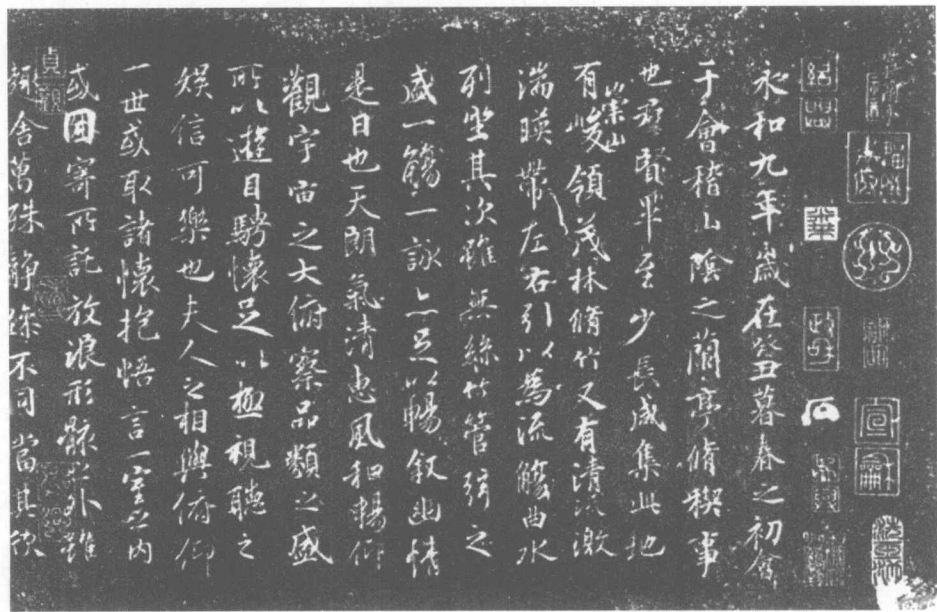 永和九年歲在癸丑暮春之初會
于會稽山陰之蘭亭脩稧事
也羣賢畢至少長咸集此地
有崇山峻領茂林脩竹又有清流激
湍暎帶左右引以為流觴曲水
列坐其次雖無絲竹管弦之
盛一觴一詠亦足以暢敘幽情
是日也天朗氣清惠風和暢仰
觀宇宙之大俯察品類之盛
所以遊目騁懷足以極視聽之
娛信可樂也夫人之相與俯仰
一世或取諸懷抱悟言一室之內
或因寄所託放浪形骸之外雖
趣舍萬殊靜躁不同當其欣